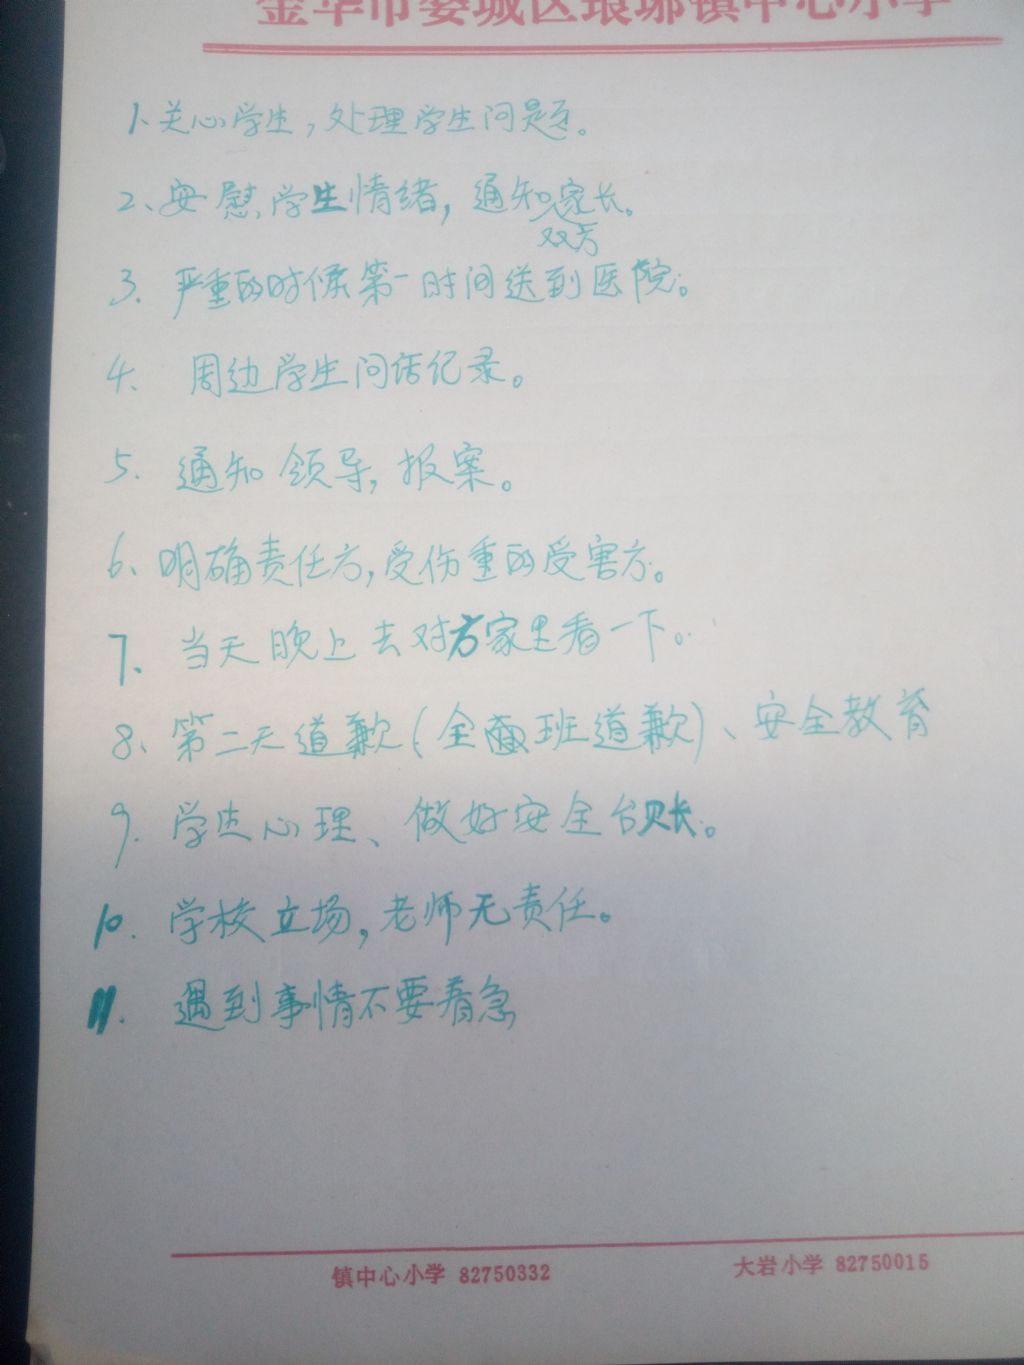 金华市婺城区琅琊镇中心小学
1、关心学生，处理学生问题。
2、安慰学生情绪，通知双方家长。
3、严重的时候第一时间送到医院。
4、周边学生问话记录。
5、通知领导，报案。
6、明确责任方，受伤重的受害方。
7、当天晚上去对方家里看一下。
8、第二天道歉（全班道歉）、安全教育
9、学生心理、做好安全台账。
10、学校立场，老师无责任。
11、遇到事情不要着急
镇中心小学 82750332 大岩小学 82750015